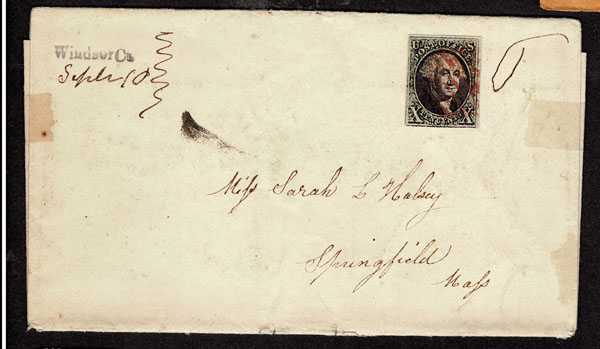 Windsor Ca
Sept 10
U S
POST OFFICE
X X
Miss Sarah L Halsey
Springfield
Mass